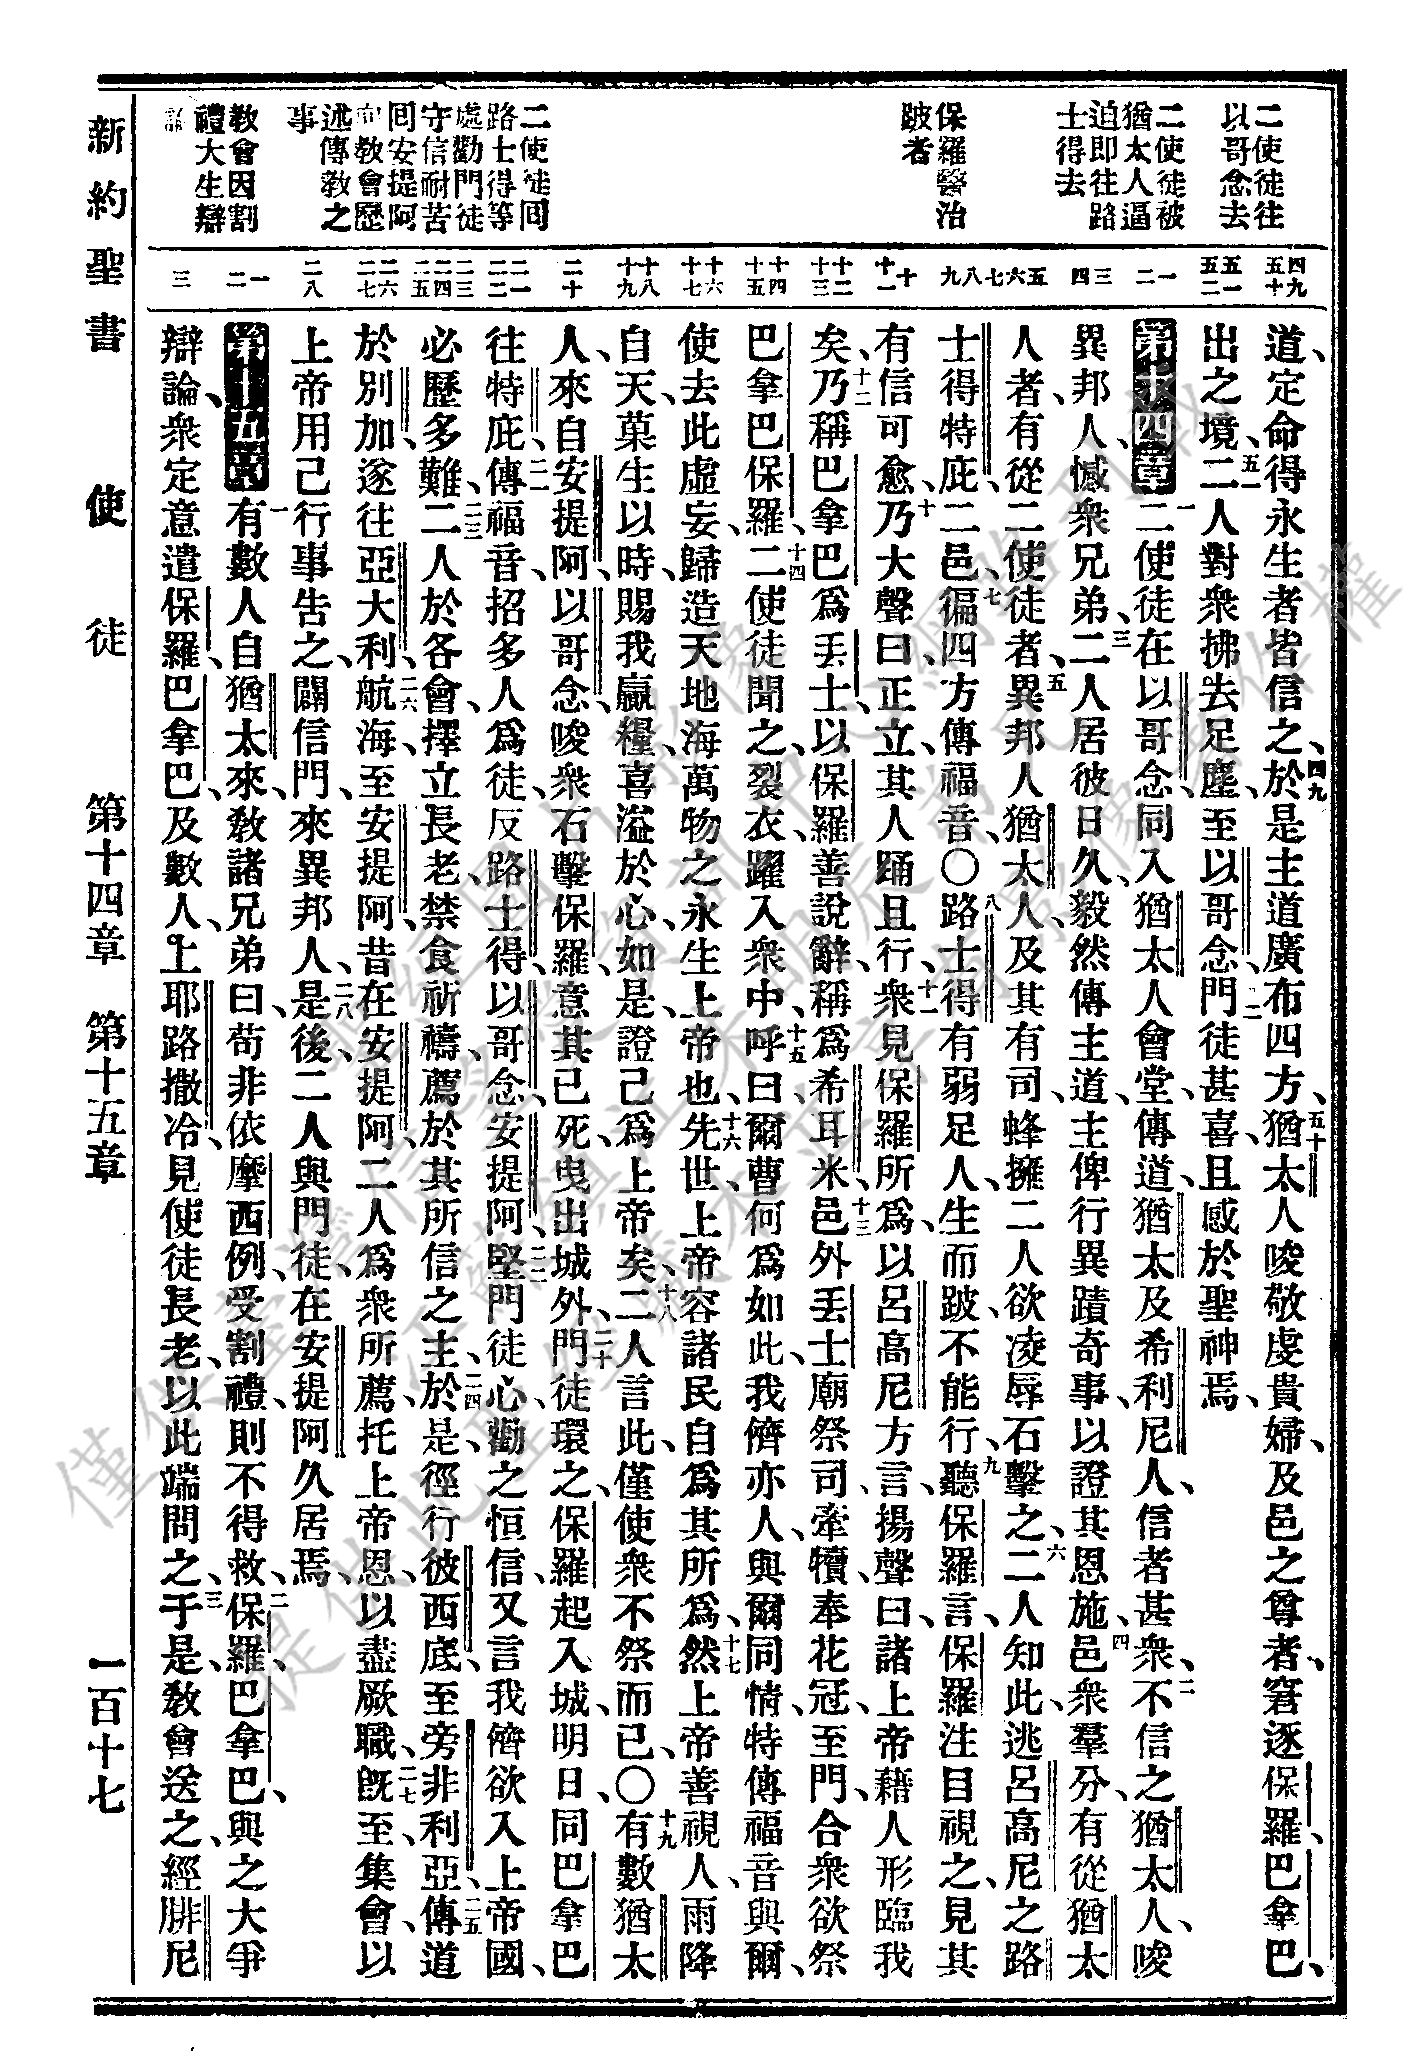 二使徒往
以哥念去
二使徒被
猶太人逼
迫即往路
士得去
保羅醫治
跛者
二使徒囘
路士得等
處勸門徒
守信耐苦
囘安提阿
向教會歷
述傳教之
事
教會因割
禮大生辯
論
四九 五十
五一 五二
一 二
三 四
五 六 七 八 九
十 十一
十二 十三
十四 十五
十六 十七
十八 十九
二十
二一 二二
二三 二四 二五
二六 二七
二八
一 二
三
道、定命得永生者皆信之、四九於是主道廣布四方、五十猶太人唆敬虔貴婦、及邑之尊者、窘逐保羅、巴拿巴、
出之境、五一二人對衆拂去足塵、至以哥念、五二門徒甚喜、且感於聖神焉、
第十四章 一二使徒在以哥念、同入猶太人會堂、傳道、猶太及希利尼人、信者甚衆、二不信之猶太人、唆
異邦人、憾衆兄弟、三二人居彼日久、毅然傳主道、主俾行異蹟奇事、以證其恩施、四邑衆羣分、有從猶太
人者、有從二使徒者、五異邦人猶太人、及其有司、蜂擁二人、欲凌辱石擊之、六二人知此、逃呂高尼之路
士得特庇二邑、七徧四方傳福音、〇八路士得有弱足人、生而跛、不能行、九聽保羅言、保羅注目視之、見其
有信可愈、十乃大聲曰、正立、其人踊且行、十一衆見保羅所爲、以呂高尼方言、揚聲曰、諸上帝藉人形臨我
矣、十二乃稱巴拿巴爲丟士、以保羅善說辭、稱爲希耳米、十三邑外丟士廟祭司、牽犢奉花冠、至門、合衆欲祭
巴拿巴保羅、十四二使徒聞之、裂衣、躍入衆中、十五呼曰、爾曹何爲如此、我儕亦人、與爾同情、特傳福音與爾、
使去此虛妄、歸造天地海萬物之永生上帝也、十六先世、上帝容諸民自爲其所爲、十七然上帝善視人、雨降
自天、菓生以時、賜我贏糧、喜溢於心、如是、證己爲上帝矣、十八二人言此、僅使衆不祭而已、〇十九有數猶太
人、來自安提阿、以哥念、唆衆石擊保羅、意其已死、曳出城外、二十門徒環之、保羅起入城、明日、同巴拿巴
往特庇、二一傳福音、招多人爲徒、反路士得、以哥念、安提阿、二二堅門徒心、勸之恒信、又言我儕欲入上帝國、
必歷多難、二三二人於各會、擇立長老、禁食祈禱、薦於其所信之主、二四於是、徑行彼西底、至旁非利亞、二五傳道
於別加、遂往亞大利、二六航海、至安提阿、昔在安提阿、二人爲衆所薦、托上帝恩、以盡厥職、二七旣至、集會、以
上帝用己行事告之、闢信門、來異邦人、二八是後、二人與門徒、在安提阿久居焉、
第十五章 一有數人自猶太來、教諸兄弟曰、苟非依摩西例、受割禮、則不得救、二保羅、巴拿巴、與之大爭
辯論、衆定意遣保羅、巴拿巴、及數人、上耶路撒冷、見使徒長老、以此端問之、三于是、教會送之、經腓尼
新約聖書 使徒 第十四章 第十五章 一百十七
僅代